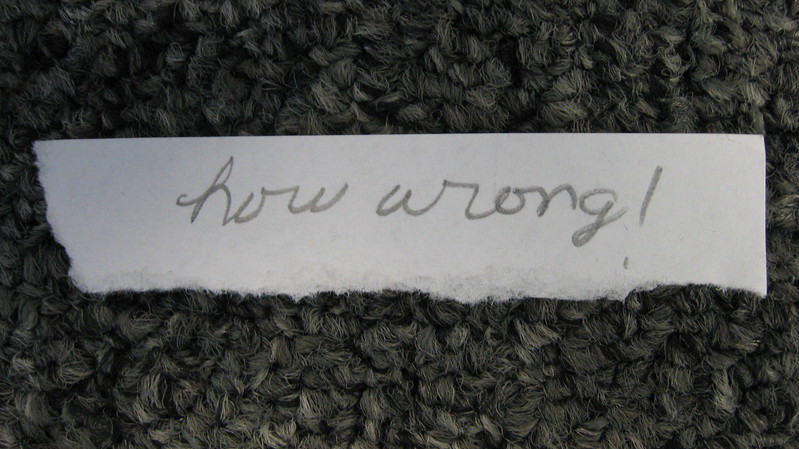 how wrong!